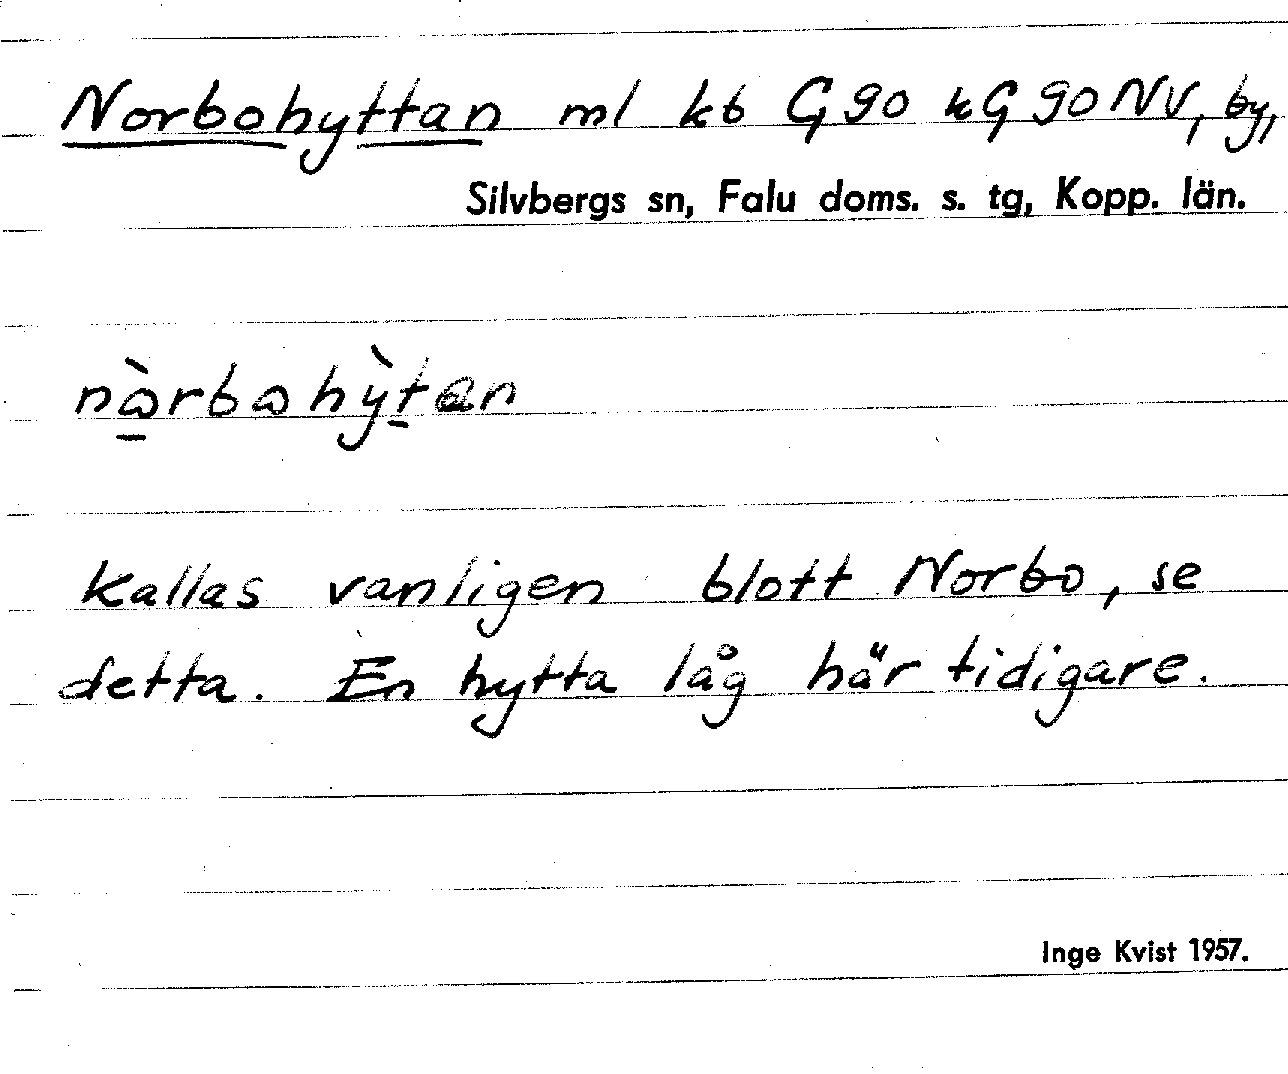 Norbohyttan ml kb G 90 kG 90 NV, by,
Silvbergs sn, Falu doms. s. tg, Kopp. län.
nàrbahỳtan
kallas vanligen blott Norbo, se
detta. En hytta låg här tidigare.
Inge Kvist 1957.